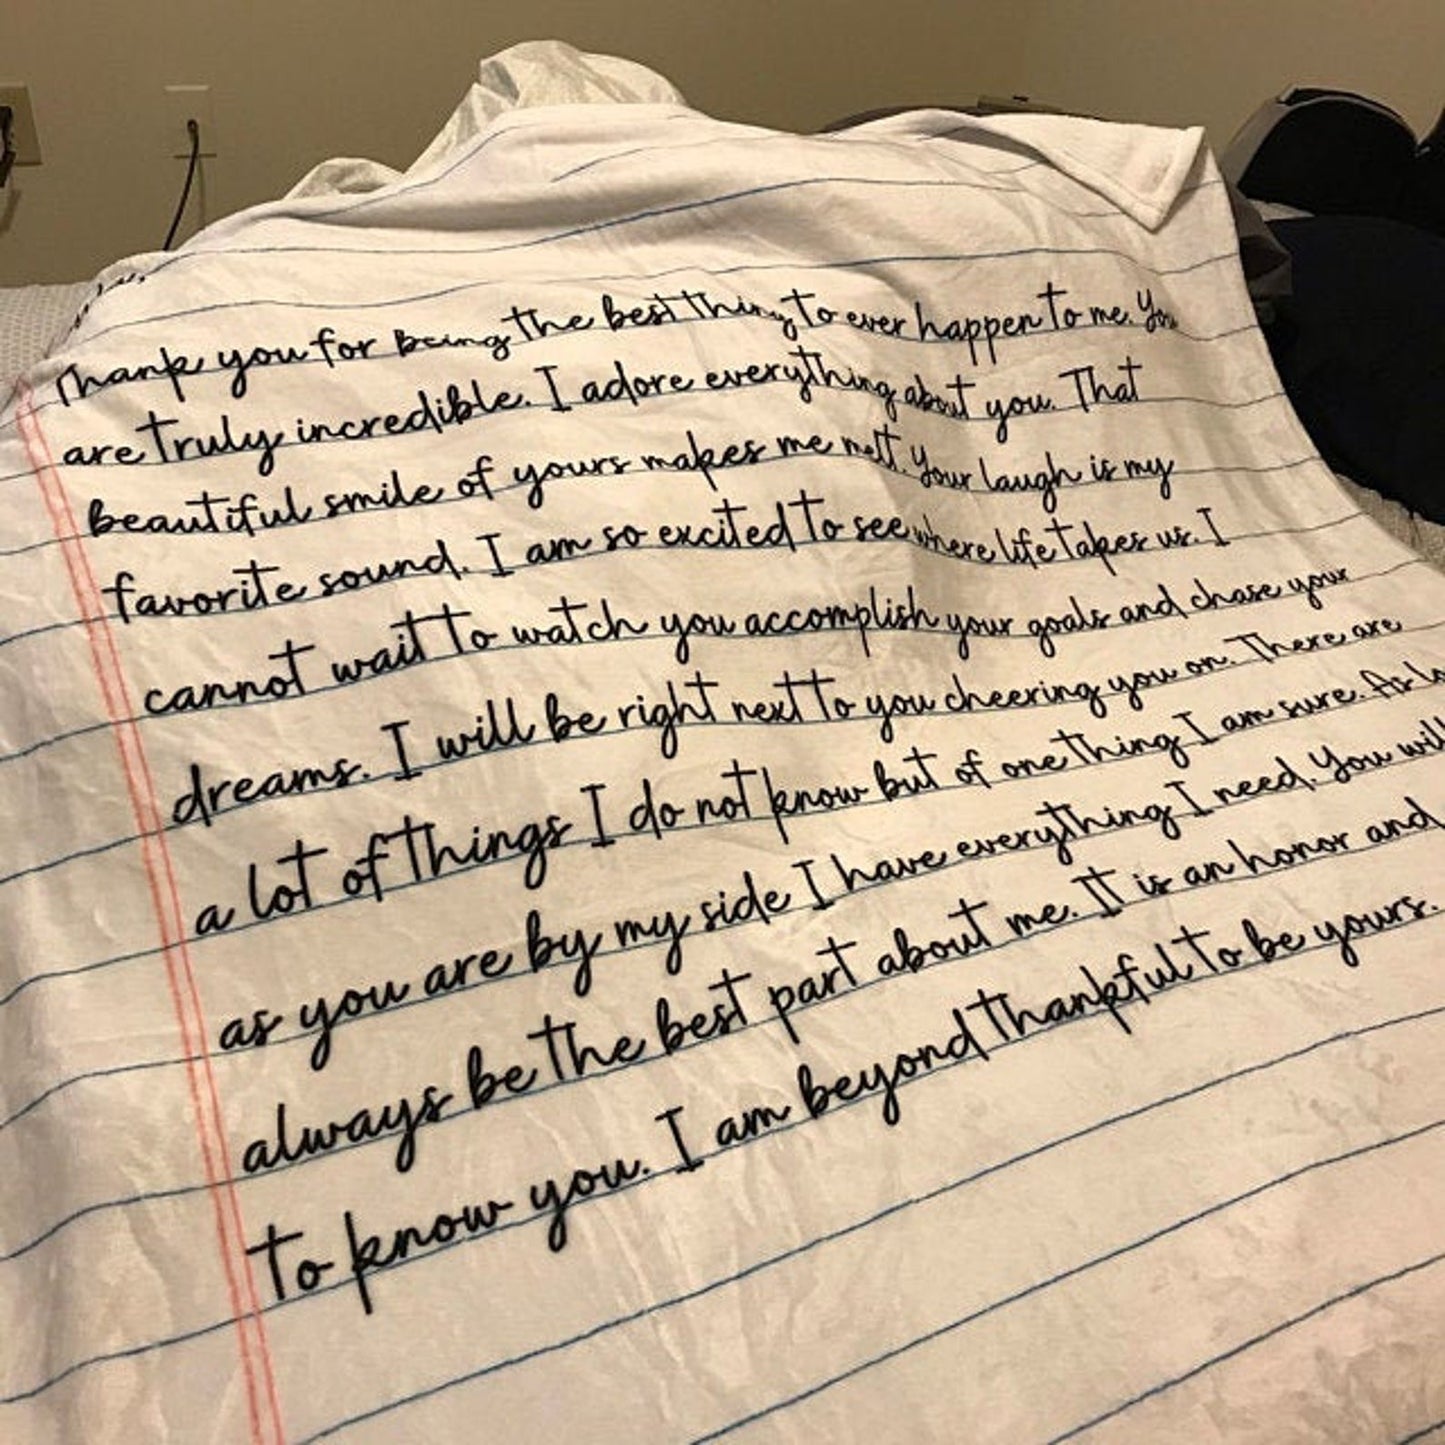 Thank you for being the best thing to ever happen to me. You
are truly incredible. I adore everything about you. That
beautiful smile of yours makes me melt. Your laugh is my
favorite sound. I am so excited to see where life takes us. I
cannot wait to watch you accomplish your goals and chase your
dreams. I will be right next to you cheering you on. There are
a lot of things I do not know but of one thing I am sure. As
as you are by my side I have everything I need. You will
always be the best part about me. It is an honor and
to know you. I am beyond thankful to be yours.